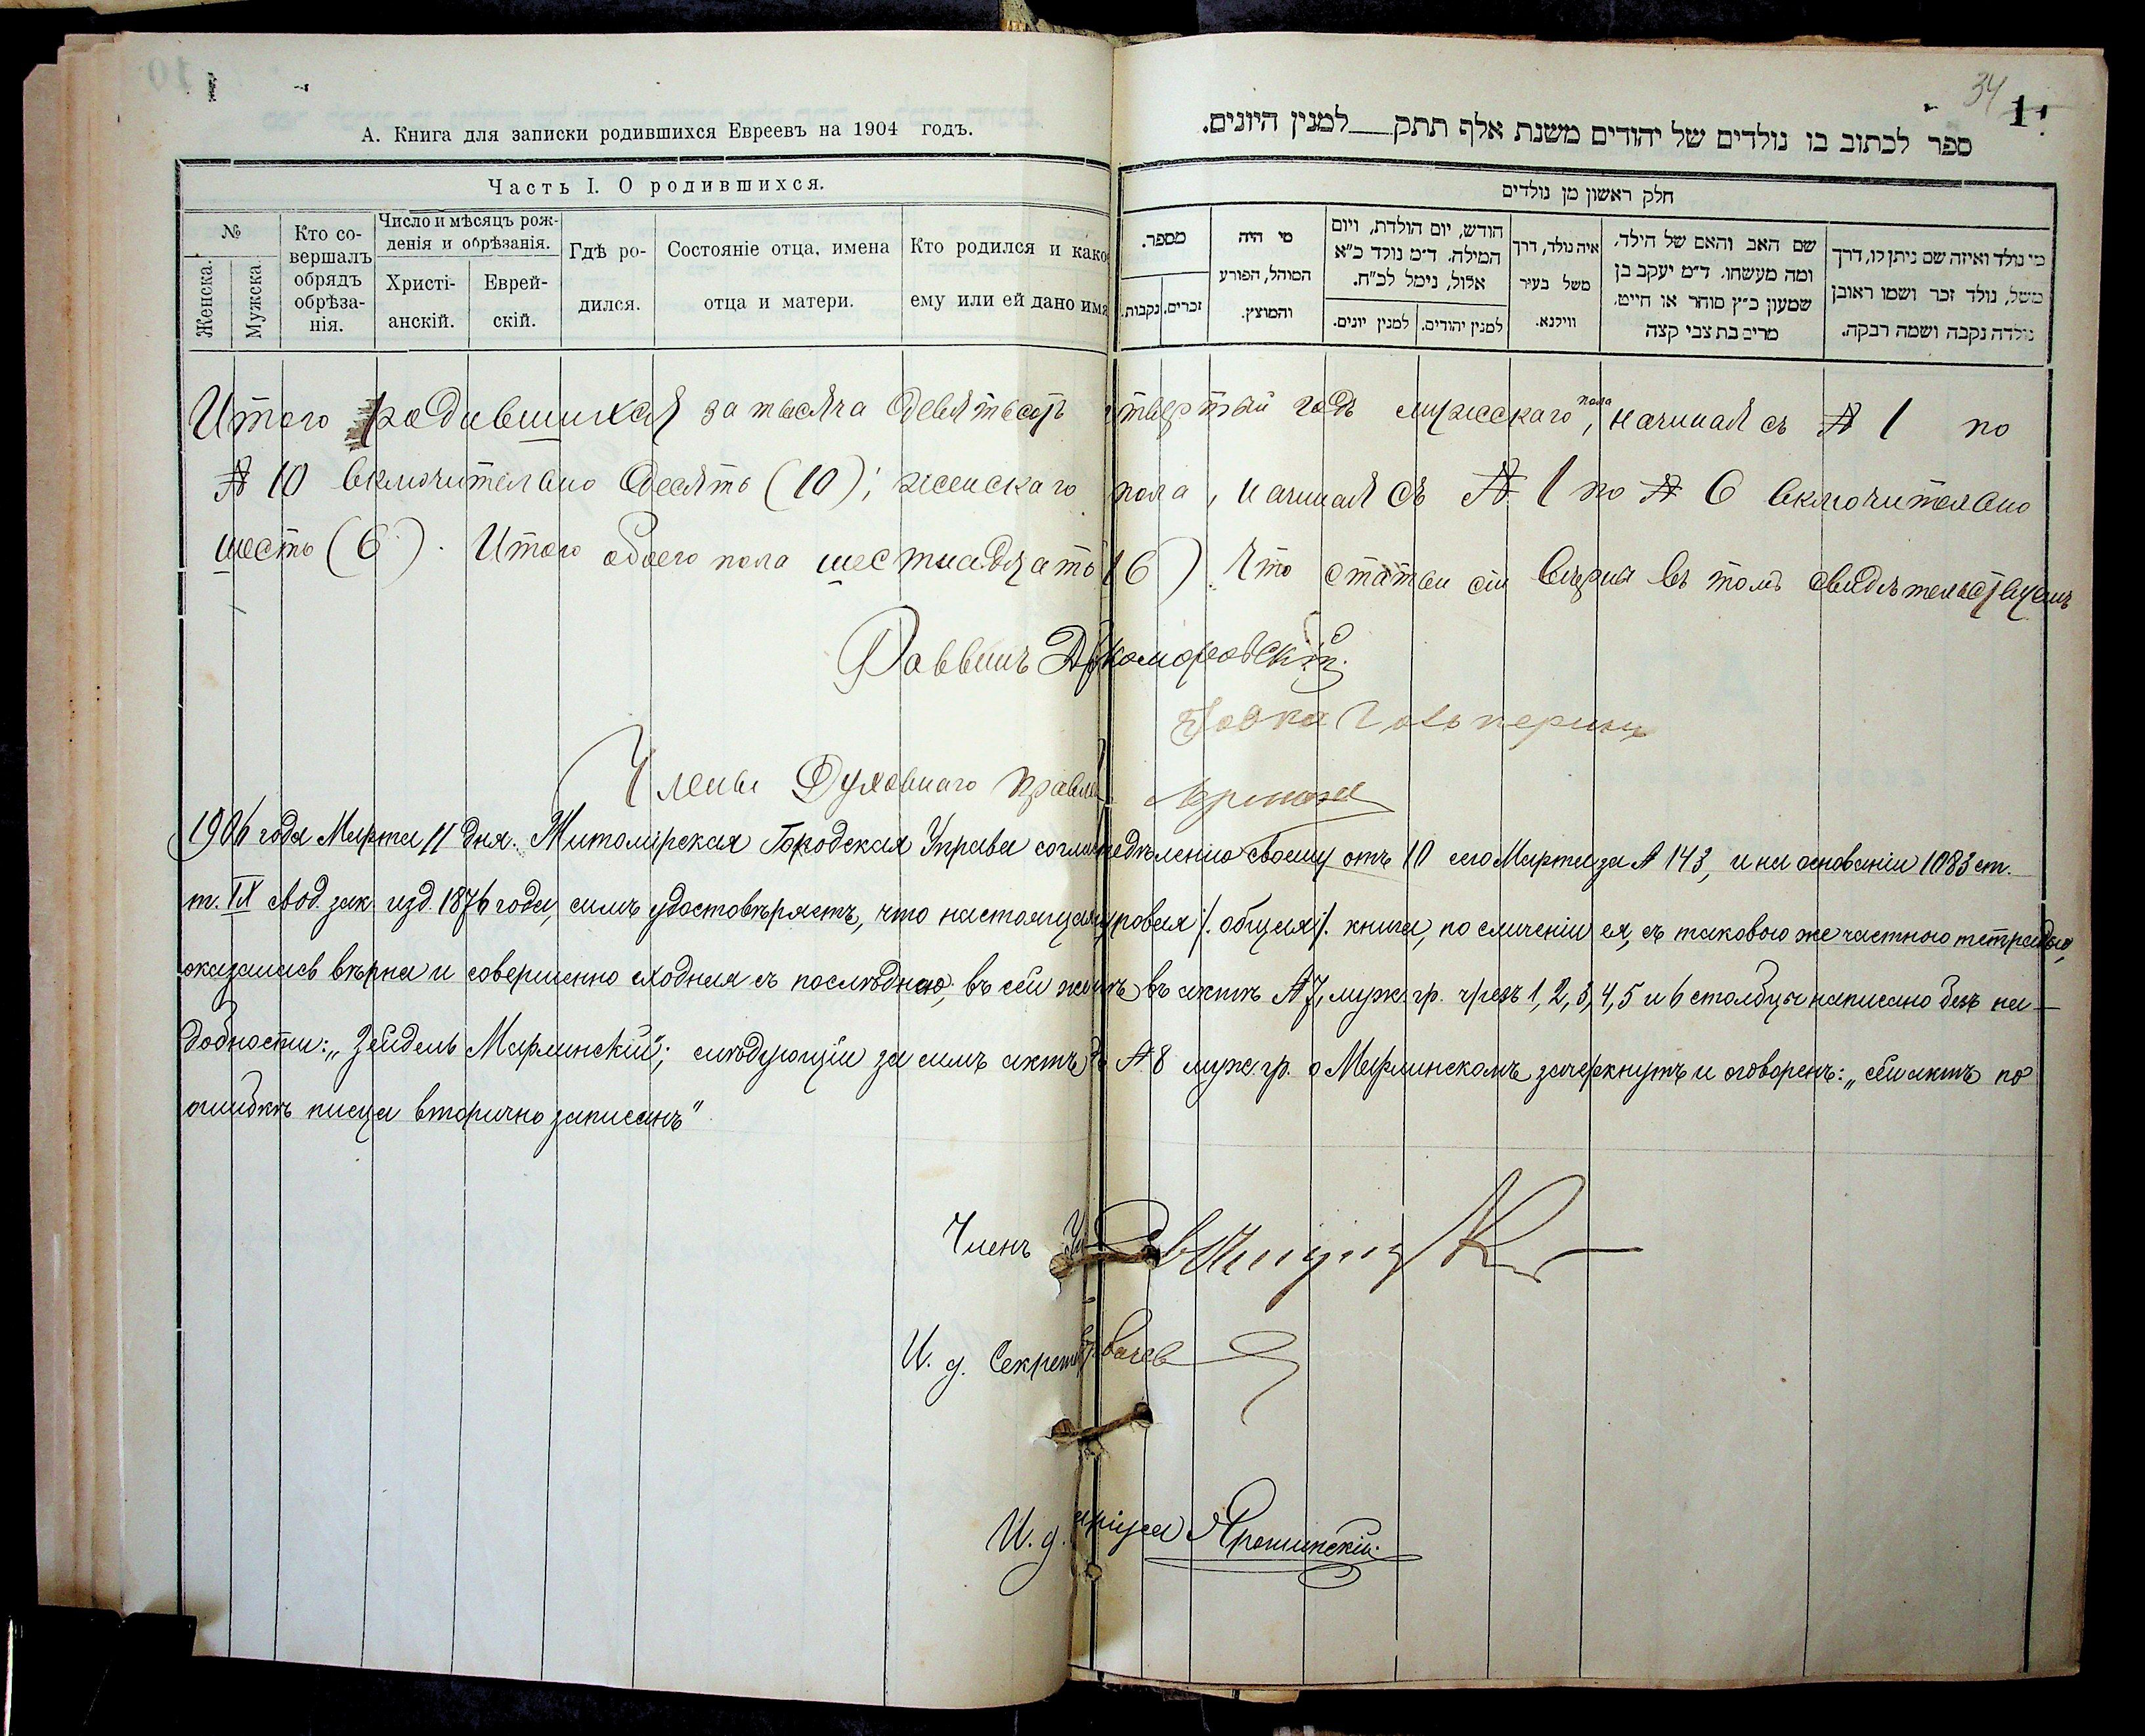 34
А. Книга для записки родившихся Евреевъ на 1904 годъ.
ספר לכתוב בו נולדים של יהודים משנת אלף תתק למנין היונים.
Часть I. О родившихся.
חלק ראשון מן נולדים
№
Женска.
Мужска.
Кто совершалъ обрядъ обрѣзанія.
Число и мѣсяцъ рожденія и обрѣзанія.
Христіанскій.
Еврейскій.
Гдѣ родился.
Состояніе отца, имена отца и матери.
Кто родился и како ему или ей дано имя
מספר.
זכרים.
נקבות.
מי היה המוהל, הפורע והמוצץ.
חודש, יום הולדת, ויום המילה. ד״מ נולד כ״א אלול, נימל לכ״ח.
למנין יהודים.
למנין יונים.
איה נולד, דרך משל בעיר ווילנא.
שם האב והאם של הילד, ומה מעשהו. ד״מ יעקב בן שמעון כ״ץ סוחר או חייט, מרים בת צבי קצה
מי נולד ואיזה שם ניתן לו, דרך משל, נולד זכר ושמו ראובן נולדה נקבה ושמה רבקה.
Итого родившихся за тысяча девятьсотъ четвертый годъ мужескаго пола, начиная съ № 1 по
№ 10 включительно десять (10); женскаго пола, начиная съ № 1 по № 6 включительно
шесть (6). Итого обоего пола шестнадцать (16). Что статьи сіи вѣрны въ томъ свидѣтельствуемъ
Раввинъ Комаровскій.
Гольперинъ
Члены Духовнаго Правлен
1906 года Марта 11 дня. Житомірская Городская Управа соглас предѣленію своему отъ 10 сего Марта за № 143, и на основаніи 1083 ст.
т. IX свод. зак. изд. 1876 года, симъ удостовѣряетъ, что настоящая шнуровая /. общая /. книга, по сличеніи ея, съ таковою же частною тетрадью,
оказалась вѣрна и совершенно сходная съ послѣднею, въ сей же книгѣ въ актѣ № 7, муж. гр. чрезъ 1, 2, 3, 4, 5 и 6 столбцы написано безъ на-
добности: „Зейдель Марлинскій"; слѣдующій за симъ актъ № 8 муж. гр. о Марлинскомъ зачеркнутъ и оговоренъ: „сей актъ по
ошибкѣ писца вторично записанъ"
Членъ
И. д. Секрет
И. д. Ярошинскій.